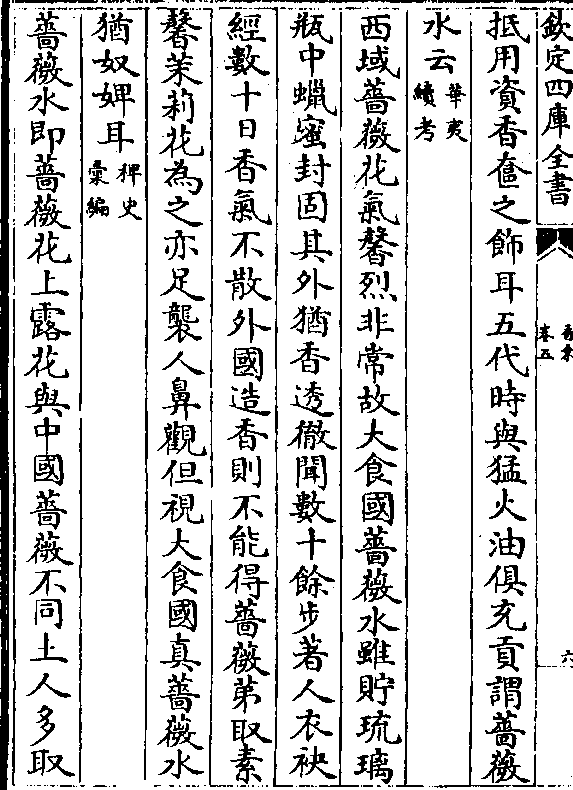 欽定四庫全書
香乘
卷五
六
抵用資香奩之飾耳五代時與猛火油俱充貢謂薔薇
水云華夷續考
西域薔薇花氣馨烈非常故大食國薔薇水雖貯琉璃
瓶中蠟蜜封固其外猶香透徹聞數十餘步著人衣袂
經數十日香氣不散外國造香則不能得薔薇苐取素
馨茉莉花為之亦足襲人鼻觀但視大食國真薔薇水
猶奴婢耳稗史彙編
薔薇水即薔薇花上露花與中國薔薇不同土人多取